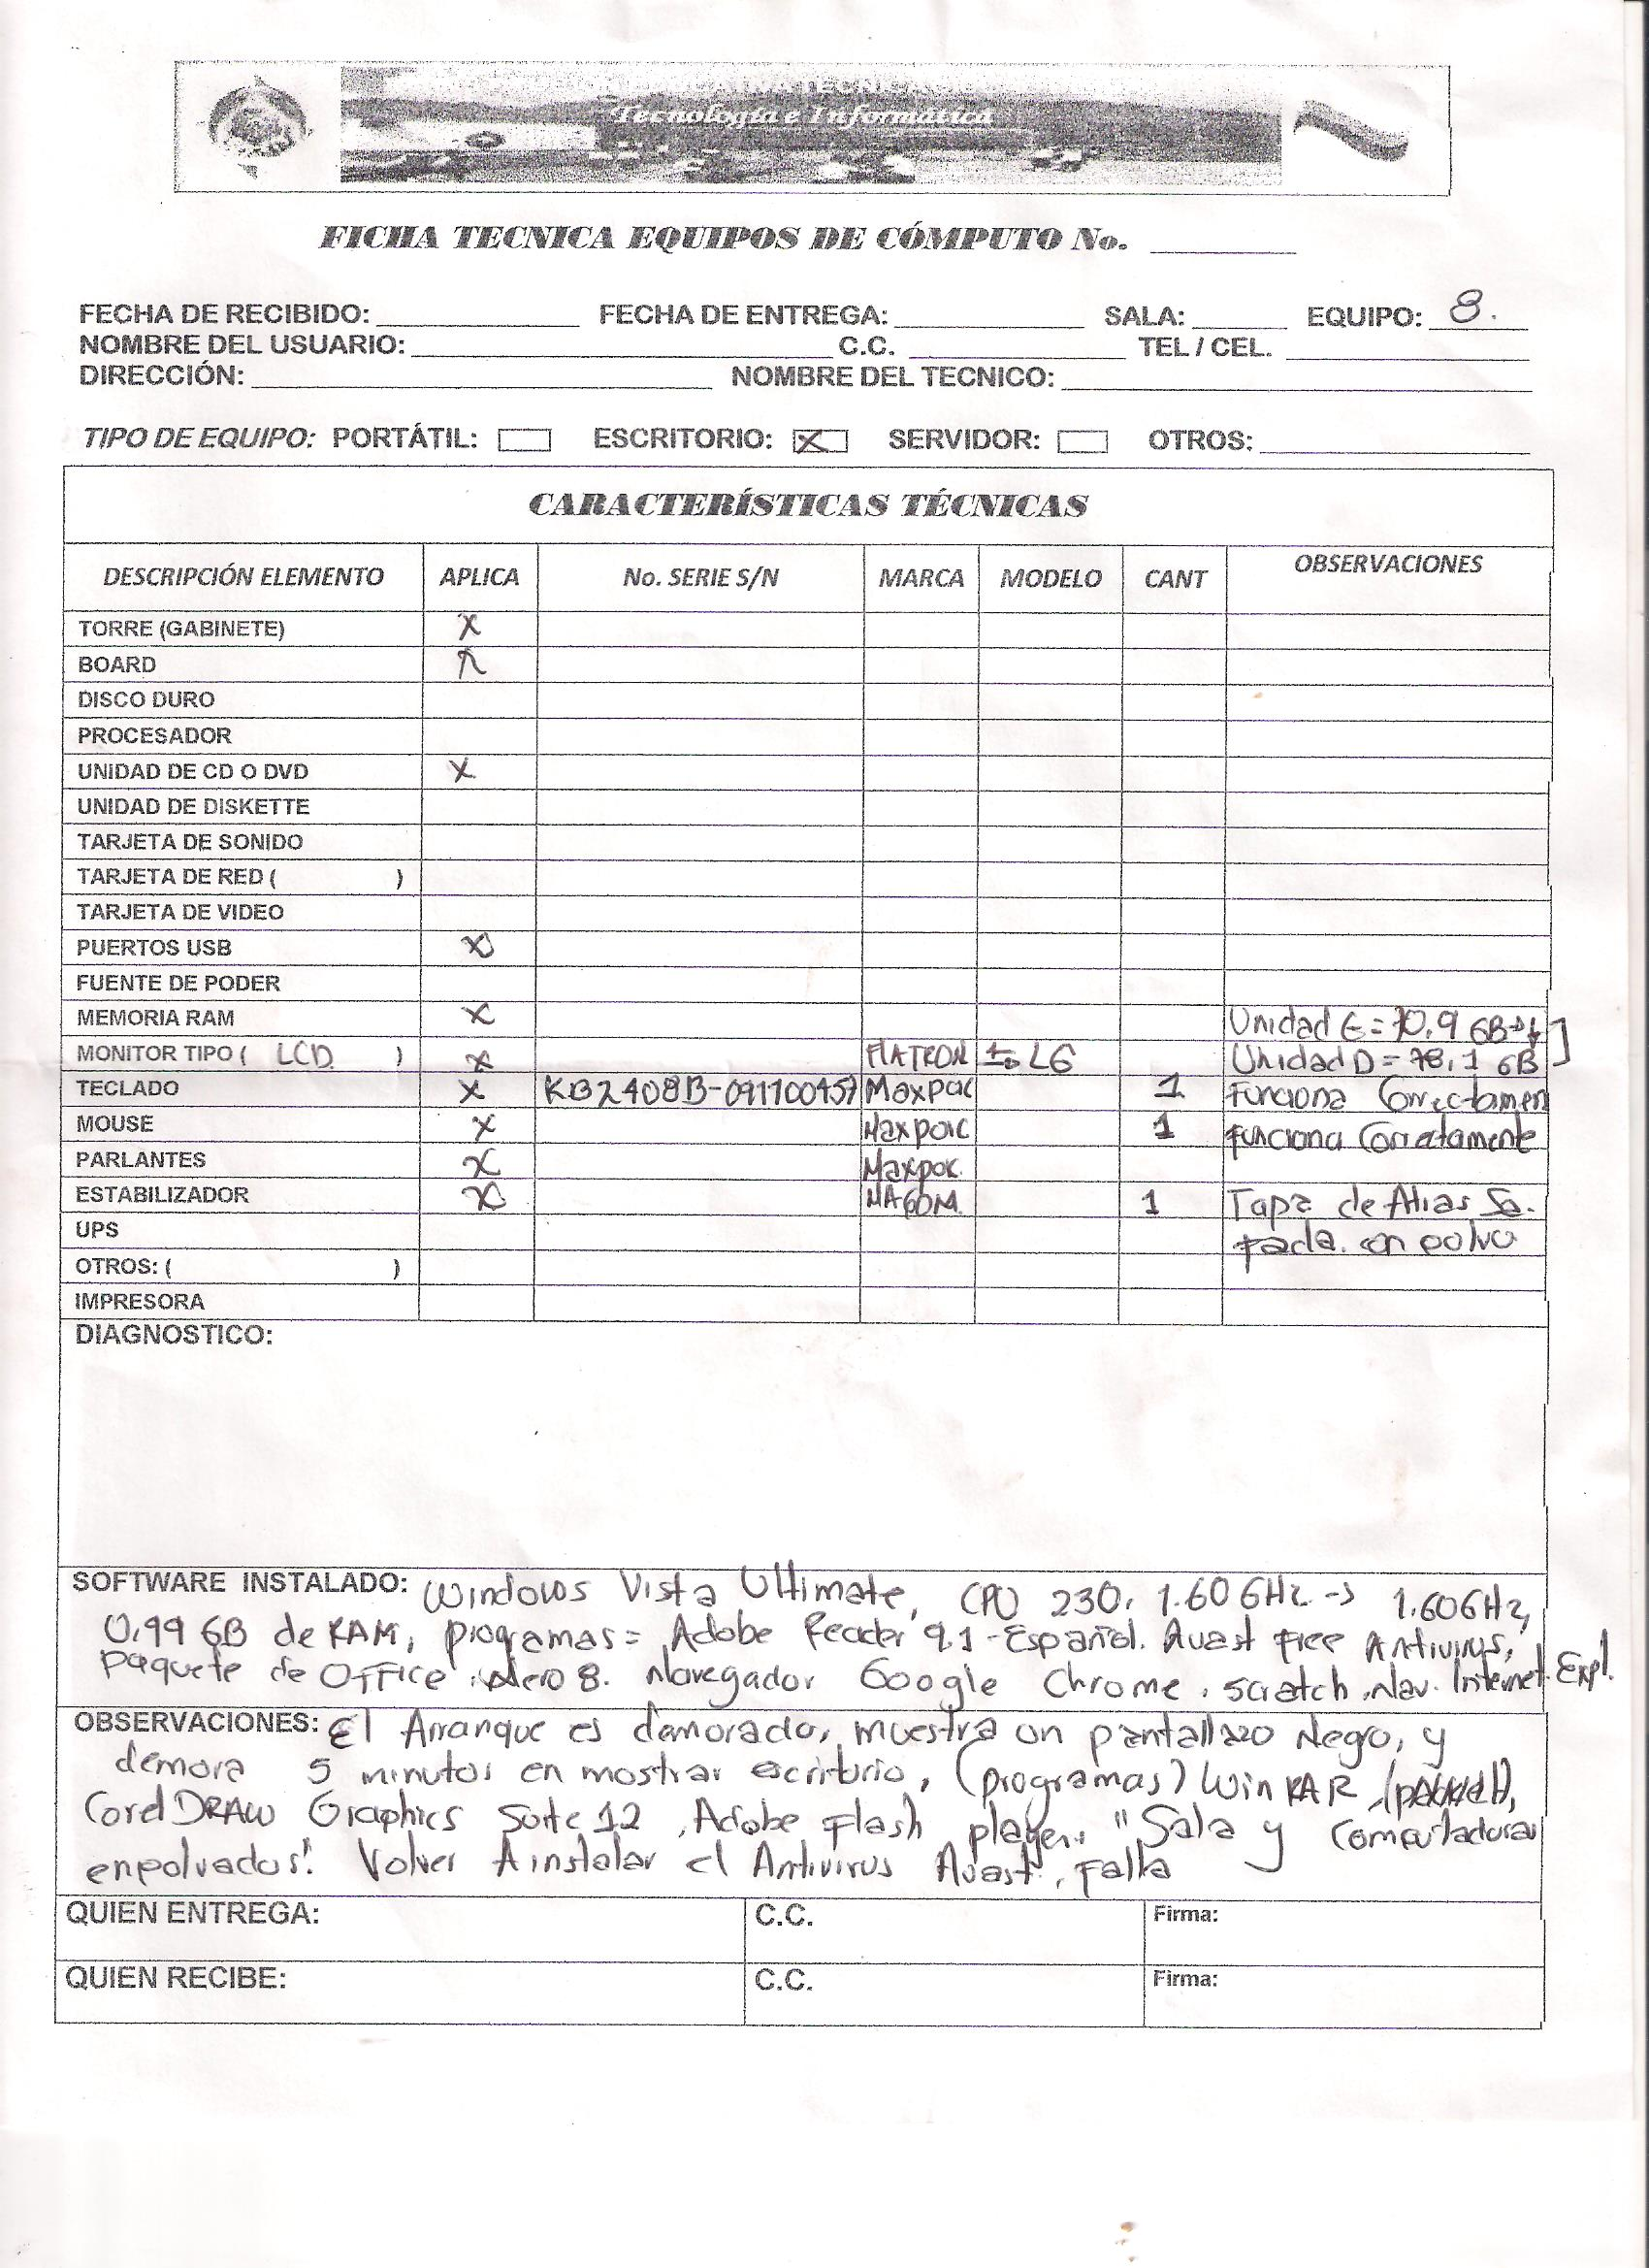 Tecnología e Informática
FICHA TECNICA EQUIPOS DE CÓMPUTO No. ________
FECHA DE RECIBIDO: ________ FECHA DE ENTREGA: ________ SALA: ____ EQUIPO: 8.
NOMBRE DEL USUARIO: ________ C.C. ________ TEL / CEL. ________
DIRECCIÓN: ________ NOMBRE DEL TECNICO: ________
TIPO DE EQUIPO: PORTÁTIL: ESCRITORIO: X SERVIDOR: OTROS: ________
CARACTERÍSTICAS TÉCNICAS
DESCRIPCIÓN ELEMENTO APLICA No. SERIE S/N MARCA MODELO CANT OBSERVACIONES
TORRE (GABINETE) X
BOARD
DISCO DURO
PROCESADOR
UNIDAD DE CD O DVD X
UNIDAD DE DISKETTE
TARJETA DE SONIDO
TARJETA DE RED ( )
TARJETA DE VIDEO
PUERTOS USB X
FUENTE DE PODER
MEMORIA RAM X Unidad = 70.9 GB
MONITOR TIPO ( LCD ) X FLATRON LG Unidad D = 78,1 GB
TECLADO X KB2408B-091100457 Maxpoc 1 Funciona Correctamen
MOUSE X Maxpoic 1 funciona Correctamente
PARLANTES X Maxpoc.
ESTABILIZADOR X MAGOM. 1 Tapa de Atras Sa-
UPS fada. con polvo
OTROS: ( )
IMPRESORA
DIAGNOSTICO:
SOFTWARE INSTALADO: Windows Vista Ultimate, CPU 230. 1.60 GHz -> 1.60GHz,
0,99 GB de RAM, programas= Adobe Reader 9.1-Español. Avast free Antivirus,
Paquete de Office . Nero 8. Navegador Google Chrome, scratch, Nav. Internet. Expl.
OBSERVACIONES: El Arranque es demorado, muestra un pantallazo Negro, y
demora 5 minutos en mostrar escritorio, (programas) WinRAR,
Corel DRAW Graphics Suite 12, Adobe Flash player. "Sala y Computadoras
enpolvados". Volver A instalar el Antivirus Avast, Falla
QUIEN ENTREGA: C.C. Firma:
QUIEN RECIBE: C.C. Firma: